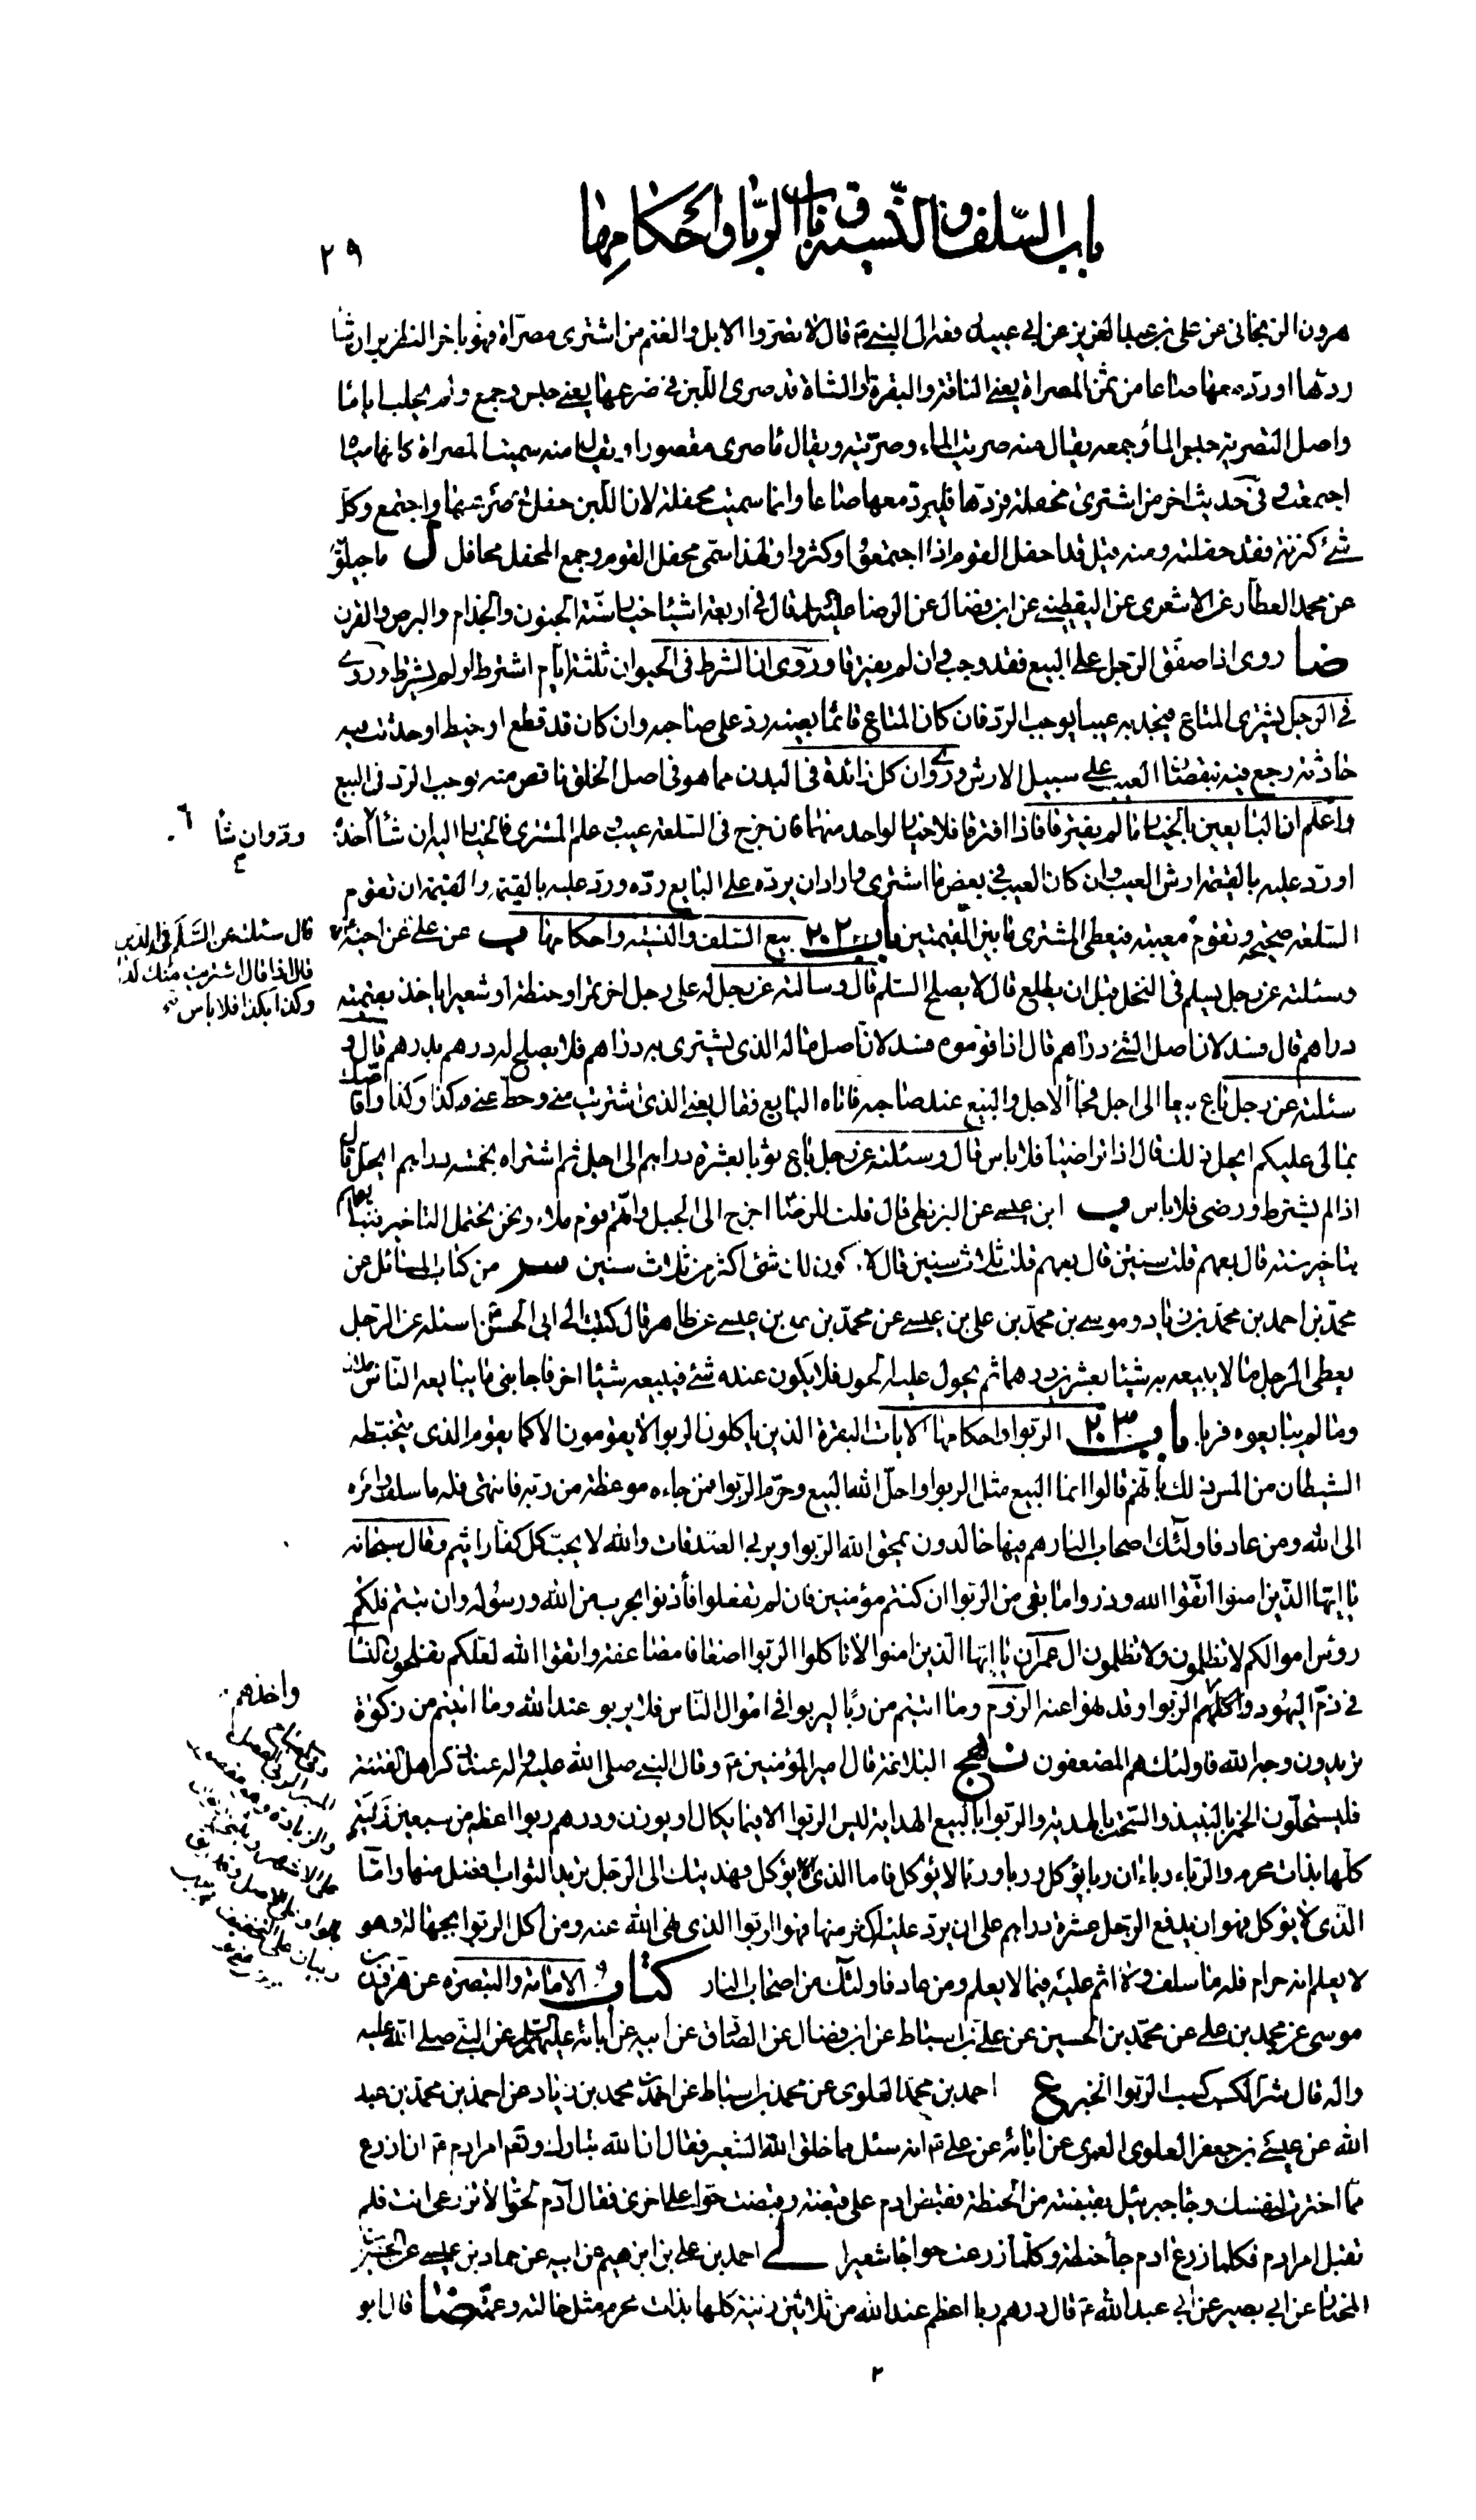 باب السّلف والنّسية و باب الرّبا واحكامها
٢٩
هرون الزنجانى عن على بن عبد العزيز عن ابى عبيد رفعه الى النبى ص قال لا تصرّوا الابل والغنم من اشترى مصرّاة فهو باخر النظرين ان شاء
ردّها ورد معها صاعا من تمر المصراة يعنى الناقة والبقرة والشاة قد صرى اللّبن فى ضرعها يعنى حبس وجمع ولم يحلب اياما
واصل التصرية حبس الماء وجمعه يقال منه صريت الماء وصرّيته ويقال ماء صرى مقصورا ويقال منه سميت المصراة كانها مياه
اجتمعت وفى حديث اخر من اشترى محفلة فردّها فليرد معها صاعا وانما سميت محفلة لان اللبن حفل فى ضرعها واجتمع وكل
شئ كثرته فقد حفلته ومنه قيل قد احفل القوم اذا اجتمعوا وكثروا ولهذا سمّى محفل القوم وجمع المحفل محافل ل ماجيلويه
عن محمد العطار عن الاشعرى عن اليقطينى عن ابن فضال عن الرضا عليه السلم قال فى اربعة اشياء خيار سنة الجنون والجذام والبرص والقرن
ضا روى اذا صفق الرّجل على البيع فقد وجب وان لم يفترقا وروى ان الشرط فى الحيوان ثلثة ايام اشترط او لم يشترط وروى
فى الرجل يشترى المتاع فيجد به عيبا يوجب الردّ فان كان المتاع قائما بعينه ردّ على صاحبه وان كان قد قطع او خيط او حدثت فيه
حادثة رجع فيه بنقصان العيب على سبيل الارش وروى ان كل زائدة فى البدن مما هو فى اصل الخلق ناقص منه يوجب الرّد فى البيع
واعلم ان البايعين بالخيار ما لم يفترقا فاذا افترقا فلا خيار لواحد منهما فان خرج فى السّلعة عيب وعلم المشترى فالخيار اليه ان شاء اخذه
وردّ وان شاء
او ردّ عليه بالقيمة ارش العيب وان كان العيب فى بعض ما اشترى واراد ان يردّه على البايع ردّه ورد عليه بالقيمة والقيمة ان تقوم
السلعة صحيحة وتقوم معيبة فيعطى المشترى ما بين القيمتين باب ٢٠٢ بيع السّلف والنسية واحكامها ب عن على عن اخيه ع
قال سئلته عن السّلم فى الدين
قال اذا قال اشتريت منك كذا
وكذا بكذا فلا باس
وسئلته عن رجل يسلم فى النخل قبل ان يطلع قال لا يصلح السّلم قال وسالته عن رجل له على رجل اخر تمر او حنطة او شعير اياخذ بقيمته
دراهم قال فسد لان اصل الشئ دراهم قال اذا قوموه فسد لان اصل ماله الذى يشترى به دراهم فلا يصلح له درهم بدرهم قال و
سئلته عن رجل باع بيعا الى اجل فجاء الاجل والبيع عند صاحبه فاتاه البايع فقال بعنى الذى اشتريت منى وحطّ عنى كذا وكذا واقاصك
بمالى عليكم ايحل ذلك قال اذا تراضيا فلا باس قال وسئلته عن رجل باع ثوبا بعشرة دراهم الى اجل ثم اشتراه بخمسة دراهم ايحلّ قال
اذا لم يشترط ورضى فلا باس ب ابن عيسى عن البزنطى قال قلت للرضا اخرج الى الجبل وانهم قوم ملاء ونحن نحتمل التاخير فنبايعهم
بتاخير سنة قال بعهم قلت سنتين قال بعهم قلت ثلاث سنين قال لا يكون لك شئ اكثر من ثلاث سنين سر من كتاب المسائل عن
محمّد بن احمد بن محمّد بن زياد وموسى بن محمّد بن على بن عيسى عن محمّد بن على بن عيسى عن طاهر قال كتبت الى ابى الحسن اسئله عن الرّجل
يعطى الرجل مالا يبيعه به شيئا بعشرين درهما ثم يحول عليه الحول فلا يكون عنده شئ فيبيعه شيئا اخر فاجابنى ما يبايعه النّاس حلال
وما لم يبايعوه فربا باب ٢٠٣ الرّبوا واحكامها الايات البقرة الذين ياكلون الربوا لا يقومون الا كما يقوم الذى يتخبطه
الشيطان من المس ذلك بانّهم قالوا انما البيع مثل الربوا واحلّ الله البيع وحرّم الرّبوا فمن جاءه موعظة من ربّه فانتهى فله ما سلف وامره
الى الله ومن عاد فاولئك اصحاب النار هم فيها خالدون يمحق الله الرّبوا ويربى الصّدقات والله لا يحبّ كل كفّار اثيم وقال سبحانه
يا ايّها الذّين امنوا اتّقوا الله وذروا ما بقى من الرّبوا ان كنتم مؤمنين فان لم تفعلوا فأذنوا بحرب من الله ورسوله وان تبتم فلكم
رؤس اموالكم لا تظلمون ولا تظلمون ال عمران يا ايّها الذين امنوا لا تاكلوا الرّبوا اضعافا مضاعفة واتقوا الله لعلكم تفلحون النساء
فى ذمّ اليهود واكلهم الرّبوا وقد نهوا عنه الرّوم وما اتيتم من ربًا ليربوا فى اموال النّاس فلا يربو عند الله وما اتيتم من زكوة
واخذهم
تريدون وجه الله فاولئك هم المضعفون نهج البلاغة قال امير المؤمنين ع وقال النبى صلى الله عليه واله عند ما ذكر اهل الفتنة
فليستحلّون الخمر بالنبيذ والسّحت بالهدية والرّبوا بالبيع الهداية ليس الرّبوا الا فيما يكال او يوزن ودرهم ربوا اعظم من سبعين زنية
كلّها بذات محرم والرّباء رباءان ربا يؤكل وربا لا يؤكل فاما الذى يؤكل فهديتك الى الرّجل تريد الثواب افضل منها وامّا
الّذى لا يؤكل فهو ان يدفع الرّجل عشرة دراهم على ان يردّ عليه اكثر منها فهو الربوا الذى نهى الله عنه ومن اكل الرّبوا بجهالة وهو
لا يعلم انه حرام فله ما سلف ولا اثم عليه فيما لا يعلم ومن عاد فاولئك من اصحاب النار كتاب الامامة والتبصرة عن هرون بن
موسى عن محمد بن على عن محمّد بن الحسين عن على بن اسباط عن ابن فضال عن الصّادق عن ابيه عن آبائه عليهم السّلم عن النّبى صلى الله عليه
واله قال شرّ الكسب كسب الرّبوا الخبر ع احمد بن محمّد العلوى عن محمد بن اسباط عن احمد بن محمد بن زياد عن احمد بن محمّد بن عبد
الله عن عيسى بن جعفر العلوى العمرى عن ابائه عن على ع انه سئل مما خلق الله الشعير فقال ان الله تبارك وتعالى امر ادم ع ان ازرع
ممّا اخترت لنفسك وجاء جبرئيل بقبضة من الحنطة فقبض ادم على قبضة وقبضت حوا على اخرى فقال آدم لحوّا لا تزرعى انت فلم
تقبل امر ادم فكلما زرع ادم جاء حنطة وكلما زرعت حوا جاء شعيرا ل احمد بن على بن ابرهيم عن ابيه عن حماد بن عيسى عن الحسين بن
المختار عن ابى بصير عن ابى عبد الله ع قال درهم ربا اعظم عند الله من ثلاثين زنية كلها بذات محرم مثل خالته وعمته ضا قال ابو
٢